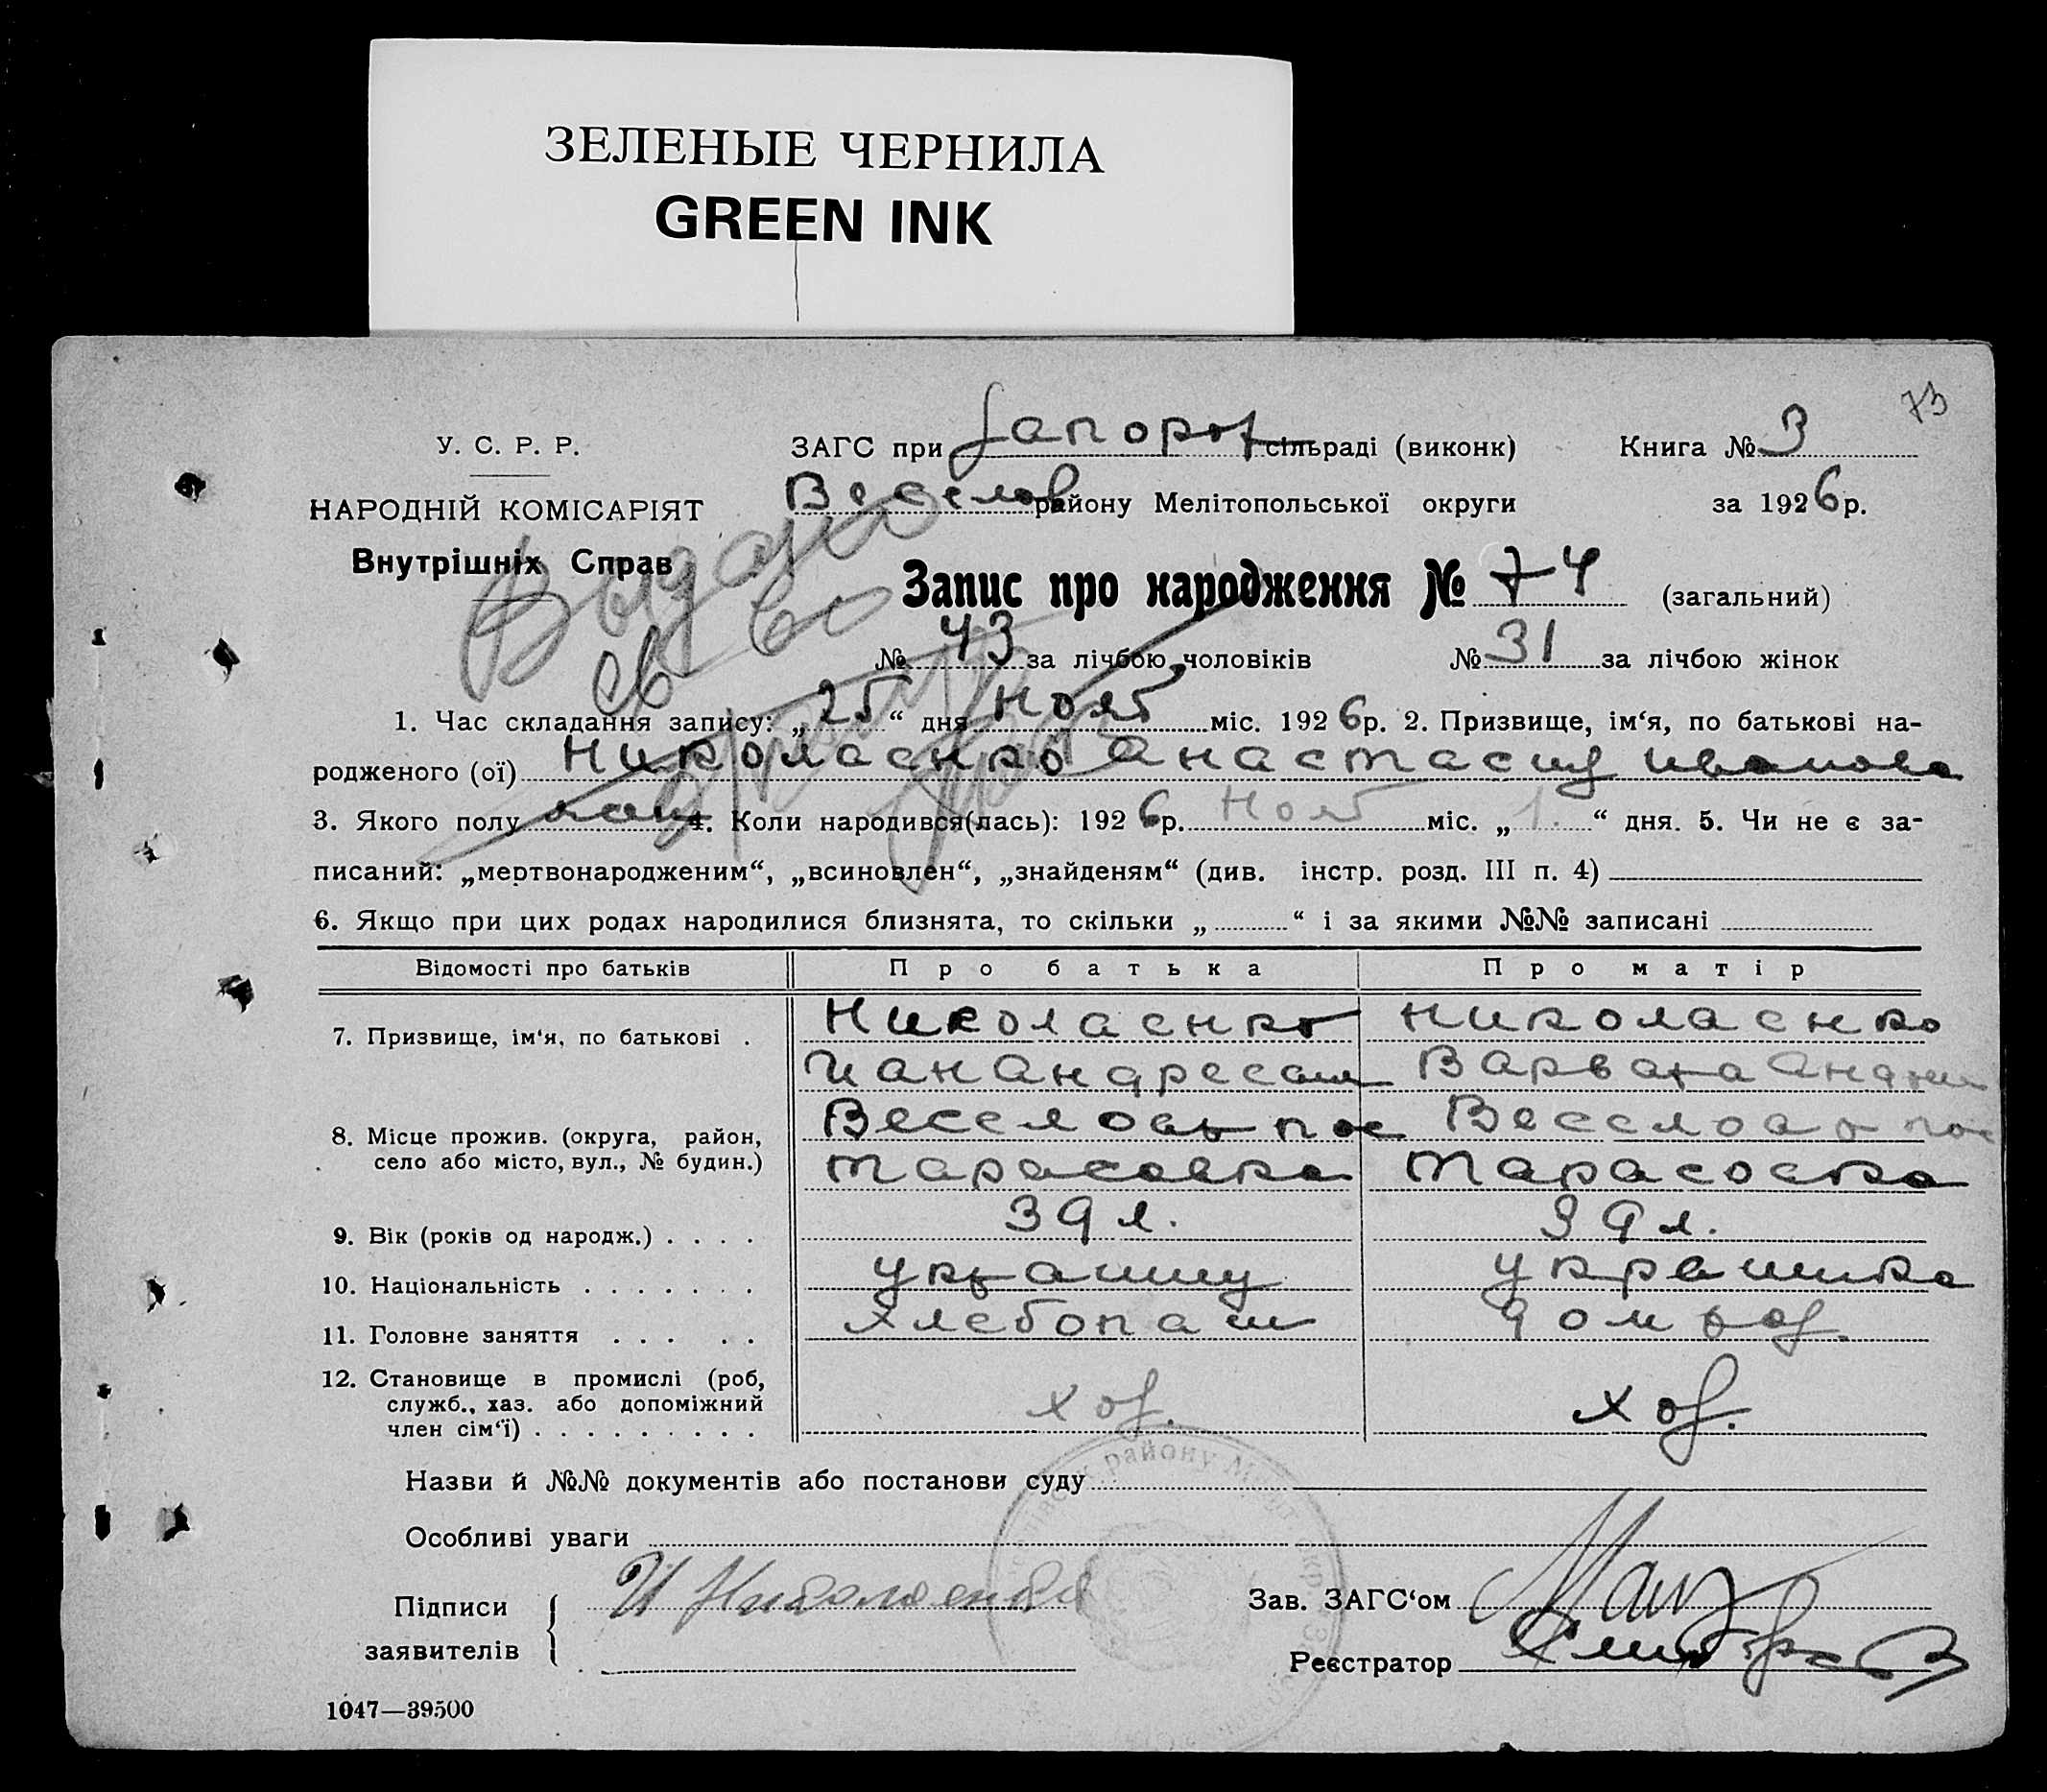 ЗЕЛЕНЫЕ ЧЕРНИЛА
GREEN INK
73
У. С. Р. Р.
НАРОДНІЙ КОМІСАРІЯТ
Внутрішніх Справ
ЗАГС при Запорож сільраді (виконк)
Веселов району Мелітопольської округи
Книга № 3
за 1926 р.
Видано
Запис про народження № 74 (загальний)
№ 43 за лічбою чоловіків № 31 за лічбою жінок
1. Час складання запису: „25“ дня нояб міс. 1926 р. 2. Призвище, ім‘я, по батькові на-
родженого (ої) Николаенко Анастасия Иванова
3. Якого полу 4. Коли народився(лась): 1926 р. нояб міс. „1.“ дня. 5. Чи не є за-
писаний: „мертвонародженим“, „всиновлен“, „знайденям“ (див. інстр. розд. III п. 4)
6. Якщо при цих родах народилися близнята, то скільки „ “ і за якими №№ записані
Відомості про батьків Про батька Про матір
7. Призвище, ім‘я, по батькові . Николаенко Николаенко
Варвара
8. Місце прожив. (округа, район, село або місто, вул., № будин.)
Тарасовка Тарасовка
9. Вік (років од народж.) . . . . 39 л. 39 л.
10. Національність . . . . . . . украинц украинка
11. Головне заняття . . . . . Хлебопаш домхоз.
12. Становище в промислі (роб, служб., хаз. або допоміжний член сім‘ї) . . . . . . . . . хоз. хоз.
Назви й №№ документів або постанови суду
Особливі уваги
Підписи заявителів И Николаенко
Зав. ЗАГС‘ом
Реєстратор
1047—39500